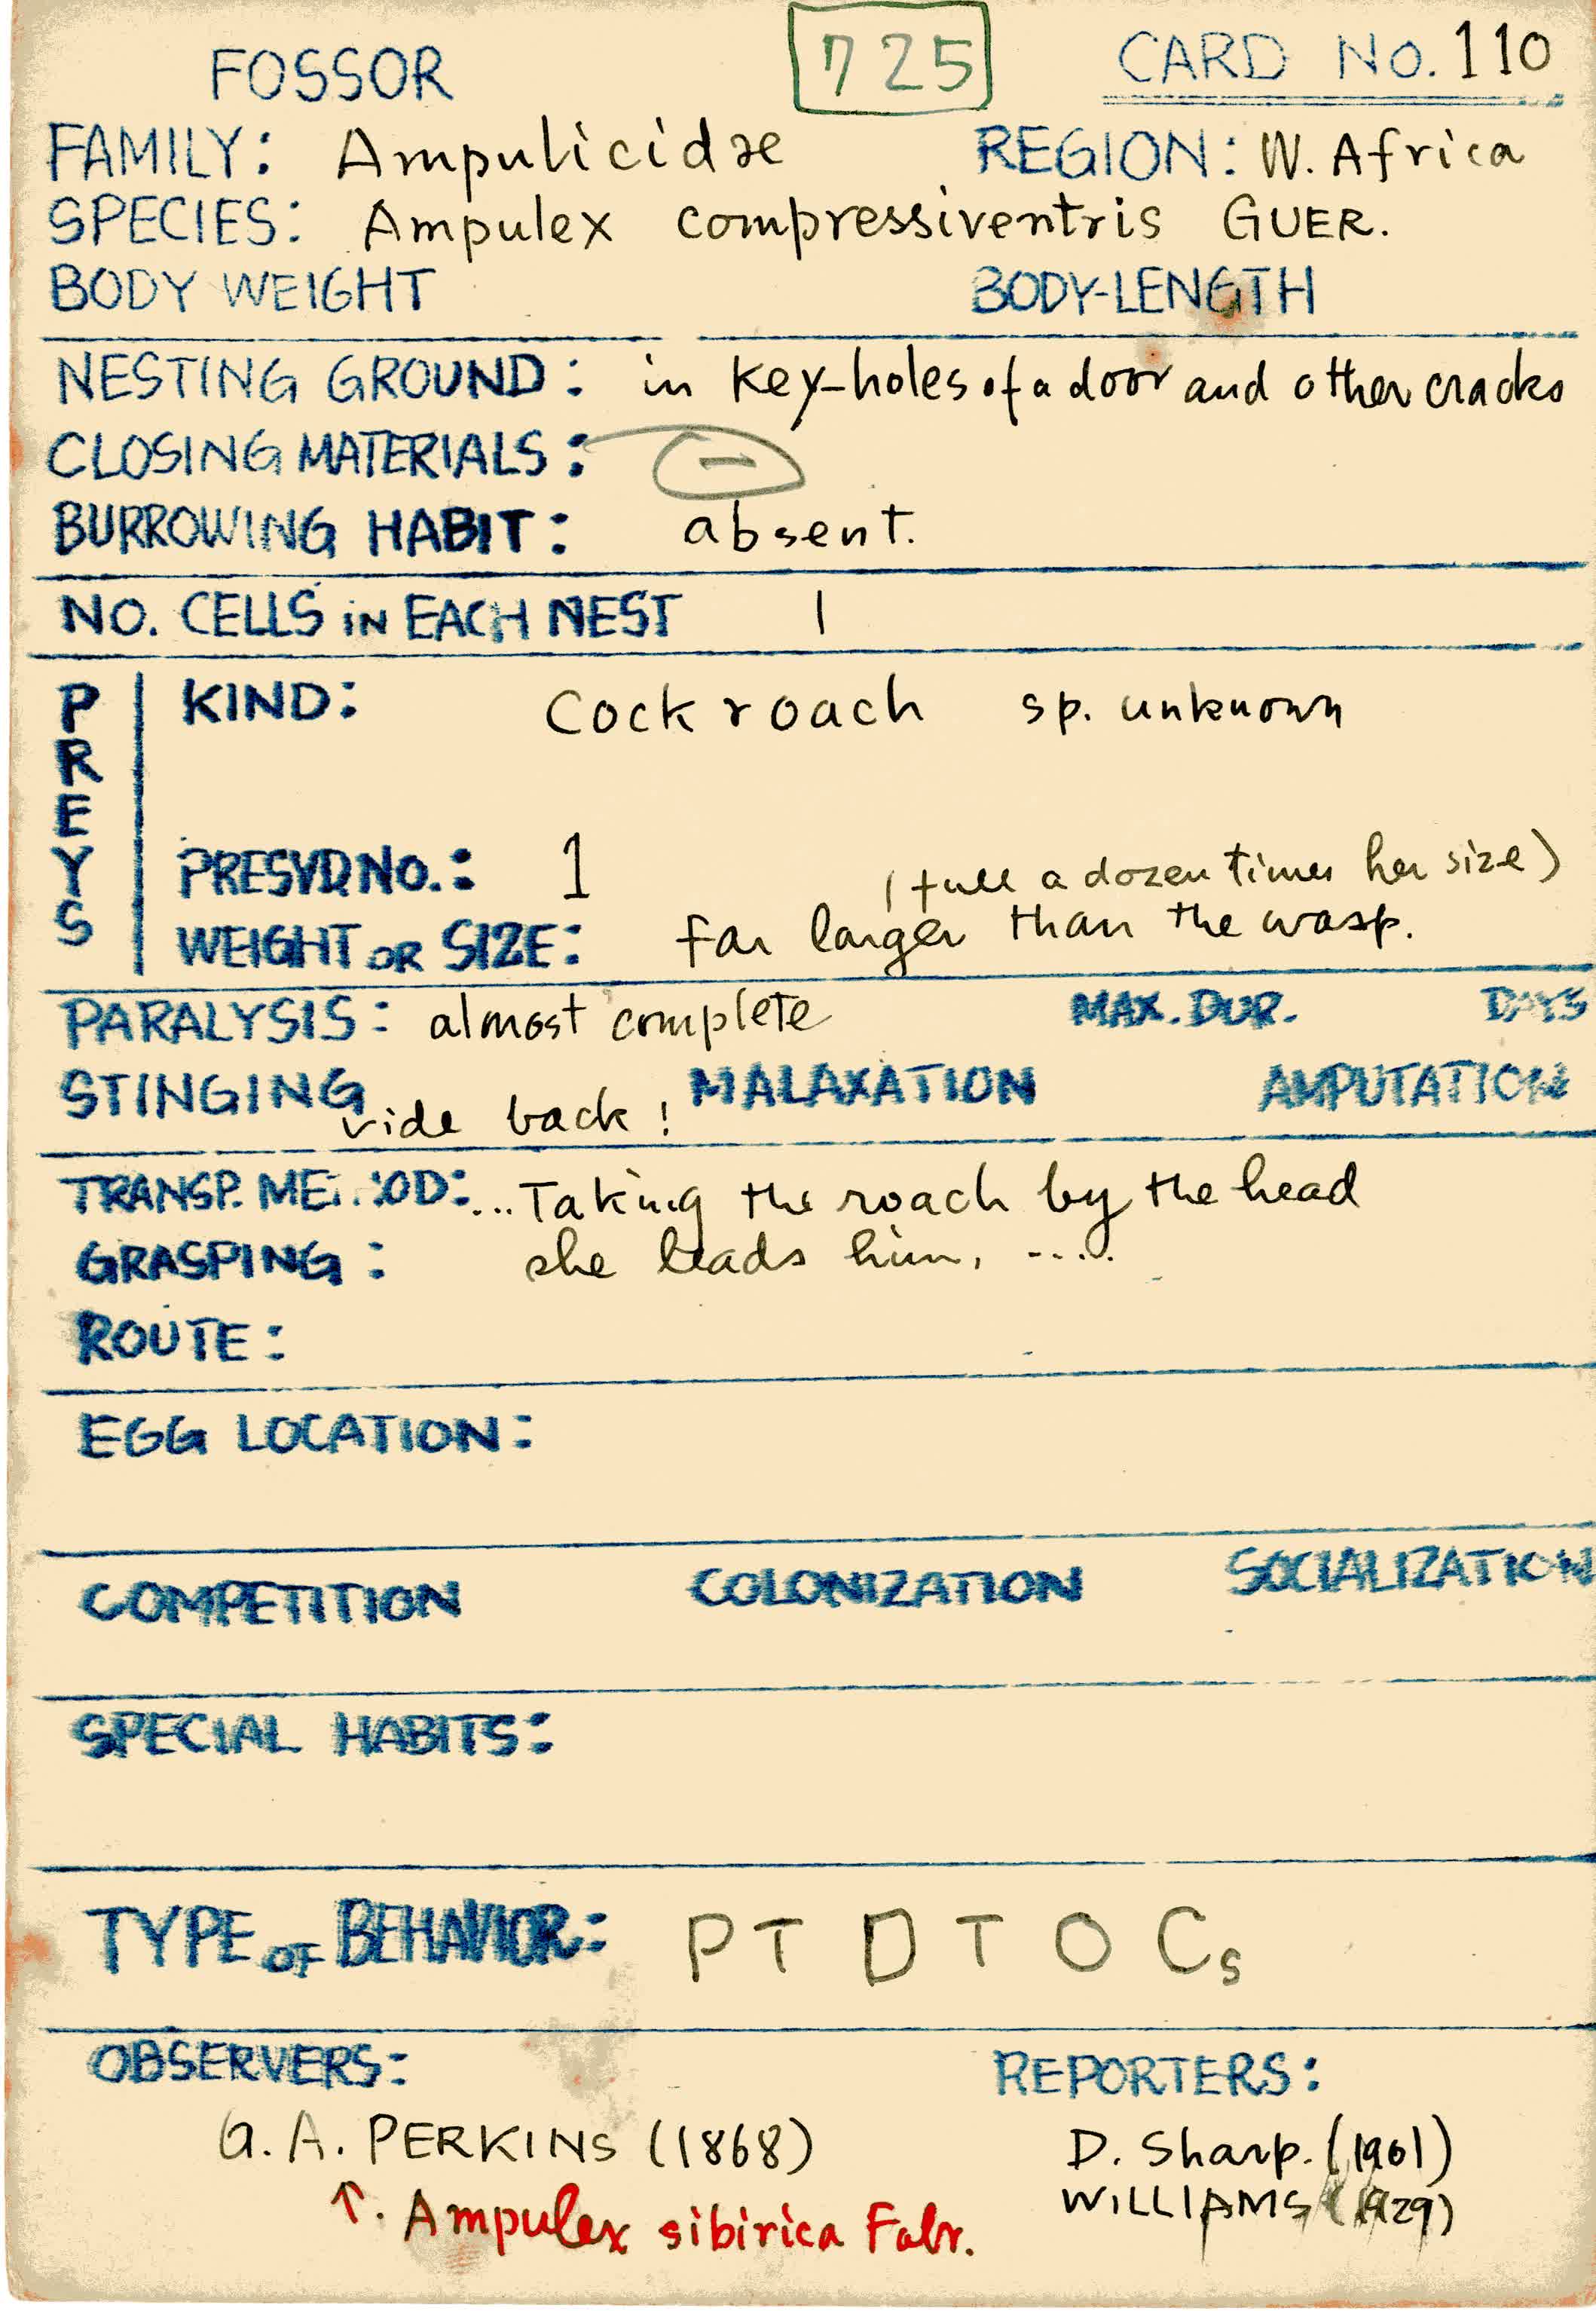 FOSSOR 725 CARD No. 110
FAMILY: Ampulicidae REGION: W. Africa
SPECIES: Ampulex compressiventris GUER.
BODY WEIGHT BODY-LENGTH
NESTING GROUND: in key-holes of a door and other cracks
CLOSING MATERIALS: —
BURROWING HABIT: absent.
NO. CELLS iN EACH NEST 1
PREYS
KIND: Cockroach sp. unknown
PRESVD No.: 1 (full a dozen times her size)
WEIGHT OR SIZE: far larger than the wasp.
PARALYSIS: almost complete MAX. DUR. DAYS
STINGING vide back! MALAXATION AMPUTATION
TRANSP. ME..OD: ...Taking the roach by the head
GRASPING: she leads him, ....
ROUTE:
EGG LOCATION:
COMPETITION COLONIZATION SOCIALIZATION
SPECIAL HABITS:
TYPE OF BEHAVIOR: P T D T O Cs
OBSERVERS: REPORTERS:
G. A. PERKINS (1868) D. Sharp. (1901)
↑. Ampulex sibirica Fabr. WILLIAMS (1929)